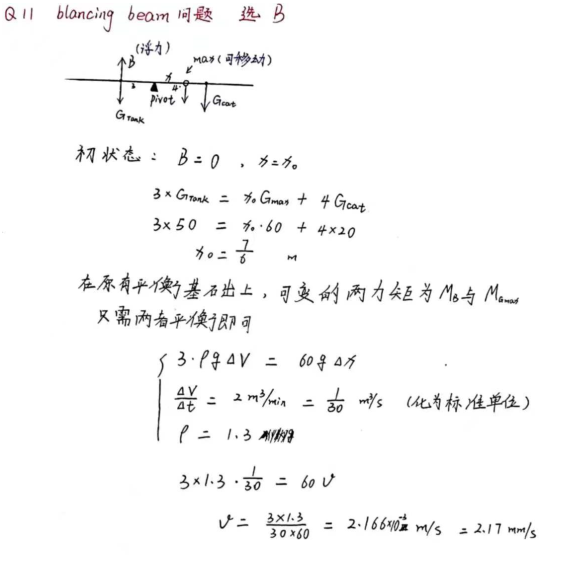 Q11 blancing beam 问题 选 B
(浮力)
B
man(可移动)
x
3
4
pivot
G_Tank
G_cat
初状态： B = 0 , x = x₀
3 × G_Tank = x₀ G_man + 4 G_cat
3×50 = x₀·60 + 4×20
x₀ = 7/6 m
在原有平衡基石出上，可变的两力矩为 M_B 与 M_Gman
只需两者平衡即可
3·ρgΔV = 60gΔx
ΔV/Δt = 2 m³/min = 1/30 m³/s (化为标准单位)
ρ = 1.3
3×1.3·1/30 = 60 v
v = 3×1.3/30×60 = 2.166×10⁻³ m/s = 2.17 mm/s